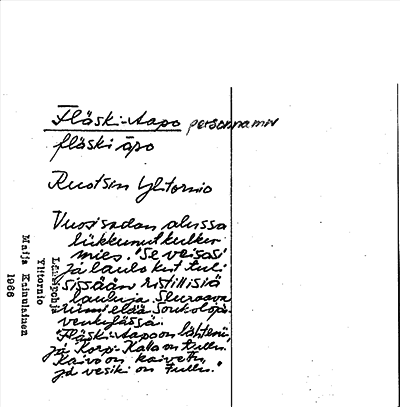 Fläski-Aapo personnamn
fläski āpo
Ruotsin Ylitornio
Vuosisadan alussa
liikkunut kulkur-
mies. "Se veisasi
ja laulo kut tuli
sissään ristillisiä
lauluja. Seuraava
runo elää Soukolojä-
venkylässä:
"Fläski-Aapo on lähteny,
ja Korpi-Kalle on tullu.
Kaivo on kaivettu,
ja vesiki on tullu."
Länsipohja
Ylitornio
Maija Kainulainen
1966